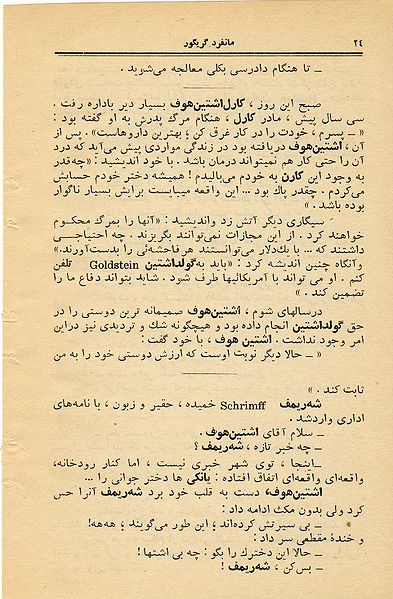 ۲٤ مانفرد گریگور
ـ تا هنگام دادرسی بکلی معالجه می‌شوید .
صبح این روز ، کارل‌اشتین‌هوف بسیار دیر باداره رفت .
سی سال پیش ، مادر کارل ، هنگام مرگ پدرش به او گفته بود :
« ـ پسرم ، خودت را در کار غرق کن ؛ بهترین داروهاست» . پس از
آن ، اشتین‌هوف دریافته بود در زندگی مواردی پیش می‌آید که درد
آن را حتی کار هم نمیتواند درمان باشد . با خود اندیشید : «چه‌قدر
به وجود این کارن به خودم می‌بالیدم ! همیشه دختر خودم حسابش
می‌کردم . چقدر پاك بود ... این واقعه میبایست برایش بسیار ناگوار
بوده باشد . »
سیگاری دیگر آتش زد واندیشید : «آنها را بمرگ محکوم
خواهند کرد . از این مجازات نمی‌توانند بگریزند . چه احتیاجی
داشتند که ... با یك‌دلار می‌توانستند هرفاحشه‌ئی را بدست‌آورند.»
وآنگاه چنین اندیشه کرد : «باید به‌گولداشتین Goldstein تلفن
کنم . او می تواند با آمریکائیها طرف شود . شاید بتواند دفاع ما را
تضمین کند . »
درسالهای شوم ، اشتین‌هوف صمیمانه ترین دوستی را در
حق گولداشتین انجام داده بود و هیچگونه شك و تردیدی نیز دراین
امر وجود نداشت . اشتین هوف ، با خود گفت :
« ـ حالا دیگر نوبت اوست که ارزش دوستی خود را به من
ثابت کند . »
شه‌ریمف Schrimff خمیده ، حقیر و زبون ، با نامه‌های
اداری واردشد .
ـ سلام آقای اشتین‌هوف .
ـ چه خبر تازه ، شه‌ریمف ؟
ـ اینجا ، توی شهر خبری نیست ، اما کنار رودخانه،
واقعه‌ای واقعه‌ای اتفاق افتاده : یانکی ها دختر جوانی را ...
اشتین‌هوف، دست به قلب خود برد شه‌ریمف آنرا حس
کرد ولی بدون مکث ادامه داد :
ـ بی سیرتش کرده‌اند ؛ این طور می‌گویند ؛ هه‌هه!
و خندۀ مقطعی سر داد :
ـ حالا این دخترك را بگو : چه بی اشتها !
ـ بس‌کن ، شه‌ریمف !